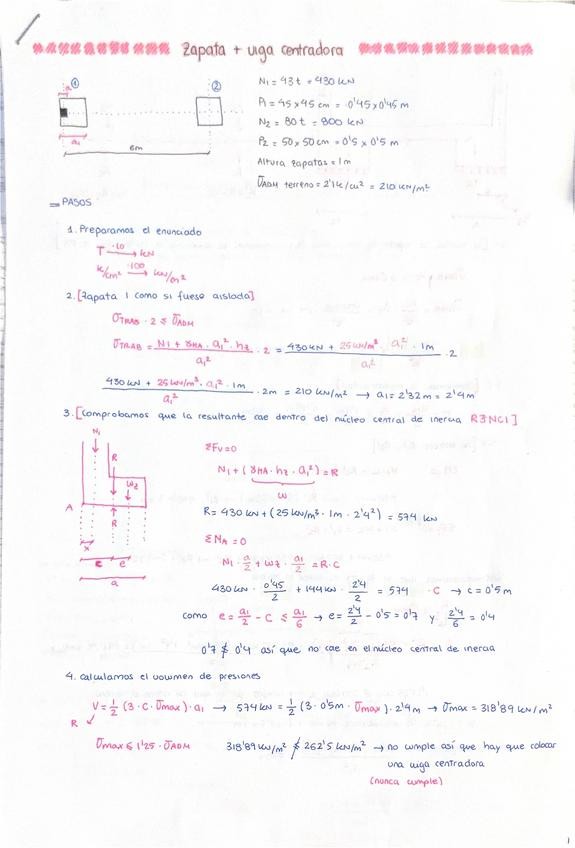 Zapata + viga centradora
① ②
a
a₁
6m
N₁ = 43 t = 430 kN
P₁ = 45 x 45 cm = 0'45 x 0'45 m
N₂ = 80 t = 800 kN
P₂ = 50 x 50 cm = 0'5 x 0'5 m
Altura zapatas = 1m
σADM terreno = 2'1 k/cm² = 210 kN/m²
PASOS
1. Preparamos el enunciado
T ·10→ kN
k/cm² ·100→ kN/m²
2. [Zapata 1 como si fuese aislada]
σTRAB · 2 ≤ σADM
σTRAB = (N1 + γHA · a₁² · hz) / a₁² · 2 = (430 kN + 25 kN/m³ · a₁² · 1m) / a₁² · 2
(430 kN + 25 kN/m³ · a₁² · 1m) / a₁² · 2m = 210 kN/m² → a₁ = 2'32 m = 2'4 m
3. [Comprobamos que la resultante cae dentro del núcleo central de inercia R∃NCI]
N₁
R
Wz
A
R
x
c e
a
ΣFv = 0
N₁ + (γHA · hz · a₁²) = R
W
R = 430 kN + (25 kN/m³ · 1m · 2'4²) = 574 kN
ΣMA = 0
N₁ · a/2 + Wz · a₁/2 = R · C
430 kN · 0'45/2 + 144 kN · 2'4/2 = 574 · C → C = 0'5 m
como e = a₁/2 - C ≤ a₁/6 → e = 2'4/2 - 0'5 = 0'7 y 2'4/6 = 0'4
0'7 ≰ 0'4 así que no cae en el núcleo central de inercia
4. Calculamos el volumen de presiones
V = 1/2 (3 · C · σmax) · a₁ → 574 kN = 1/2 (3 · 0'5m · σmax) · 2'4m → σmax = 318'89 kN/m²
R
σmax ≤ 1'25 · σADM 318'89 kN/m² ≰ 262'5 kN/m² → no cumple así que hay que colocar
una viga centradora
(nunca cumple)
1